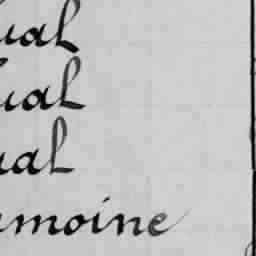 ual
ual
ual
moine